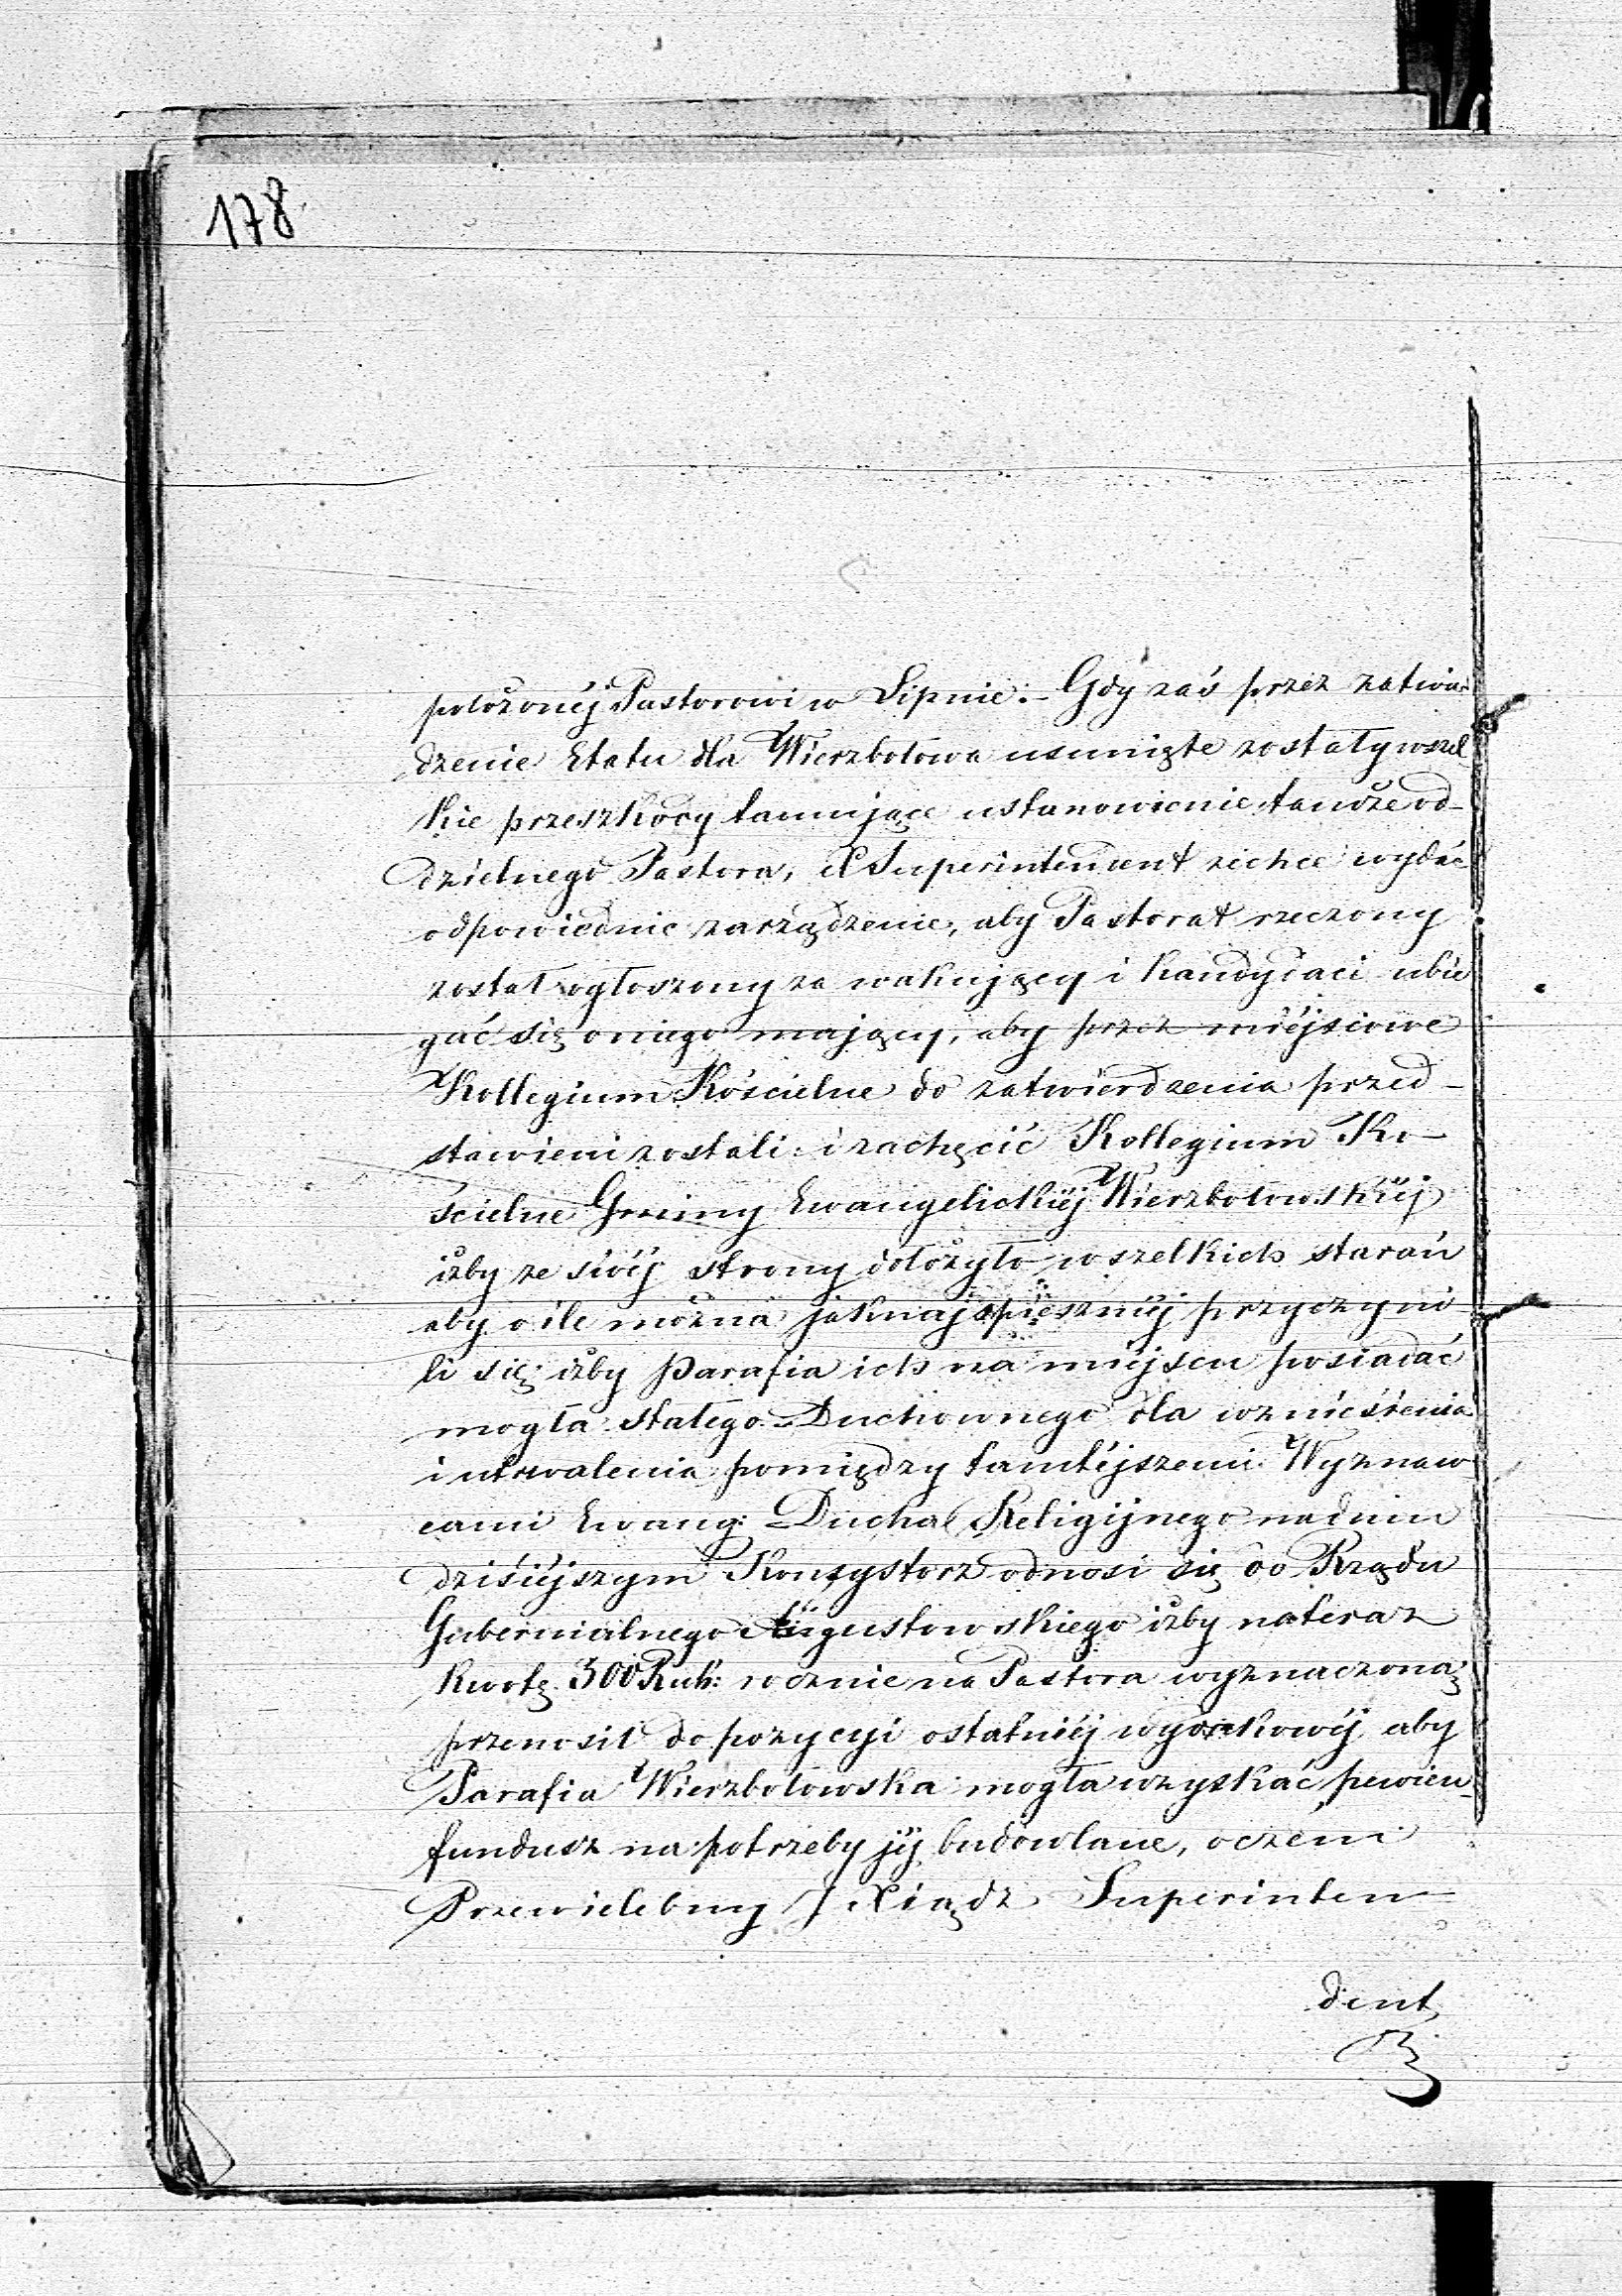 178
położonéj Pastorowi w Lipnie. – Gdy zaś przez zatwier
dzenie Etatu dla Wierzbołowa usunięte zostały wszel
kie przeszkody tamujące ustanowienie tamże od-
dzielnego Pastora, X Superintendent zechce wydać
odpowiednie zarządzenie, aby Pastorat rzeczony
został ogłoszony za wakujący i kandydaci ubie
gać się o niego mający, aby przez miejscowe
Kollegium Kościelne do zatwierdzenia przed-
stawieni zostali i zachęcić Kollegium Ko-
ścielne Gminy Ewangelickiéj Wierzbołowskiéj
iżby ze swéj strony dołożyło wszelkich starań
aby o ile można jaknajspieszniéj przyczyni
li się iżby Parafia ich na miejscu posiadać
mogła stałego Duchownego dla wznieśienia
i utrwalenia pomiędzy tamtéjszemi Wyznaw
cami Ewang: Ducha Religijnego na dniu
dzisiéjszym Konsystorz odnosi się do Rządu
Gubernialnego Augustowskiego iżby nateraz
kwotę 300 Rub: rocznie na Pastora wyznaczoną
przenosił do pozycyi ostatniéj wydatkowéj aby
Parafia Wierzbołowska mogła uzyskać pewien
fundusz na potrzeby jéj budowlane, o czém
Przewielebny J Xiądz Superinten
dent